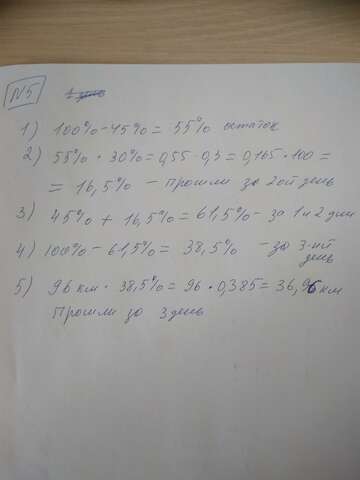 N5
1) 100% - 45% = 55% остаток
2) 55% · 30% = 0,55 · 0,3 = 0,165 · 100 =
= 16,5% - прошли за 2ой день
3) 45% + 16,5% = 61,5% - за 1 и 2 дни
4) 100% - 61,5% = 38,5% - за 3-ий день
5) 96 км · 38,5% = 96 · 0,385 = 36,96 км
Прошли за 3 день